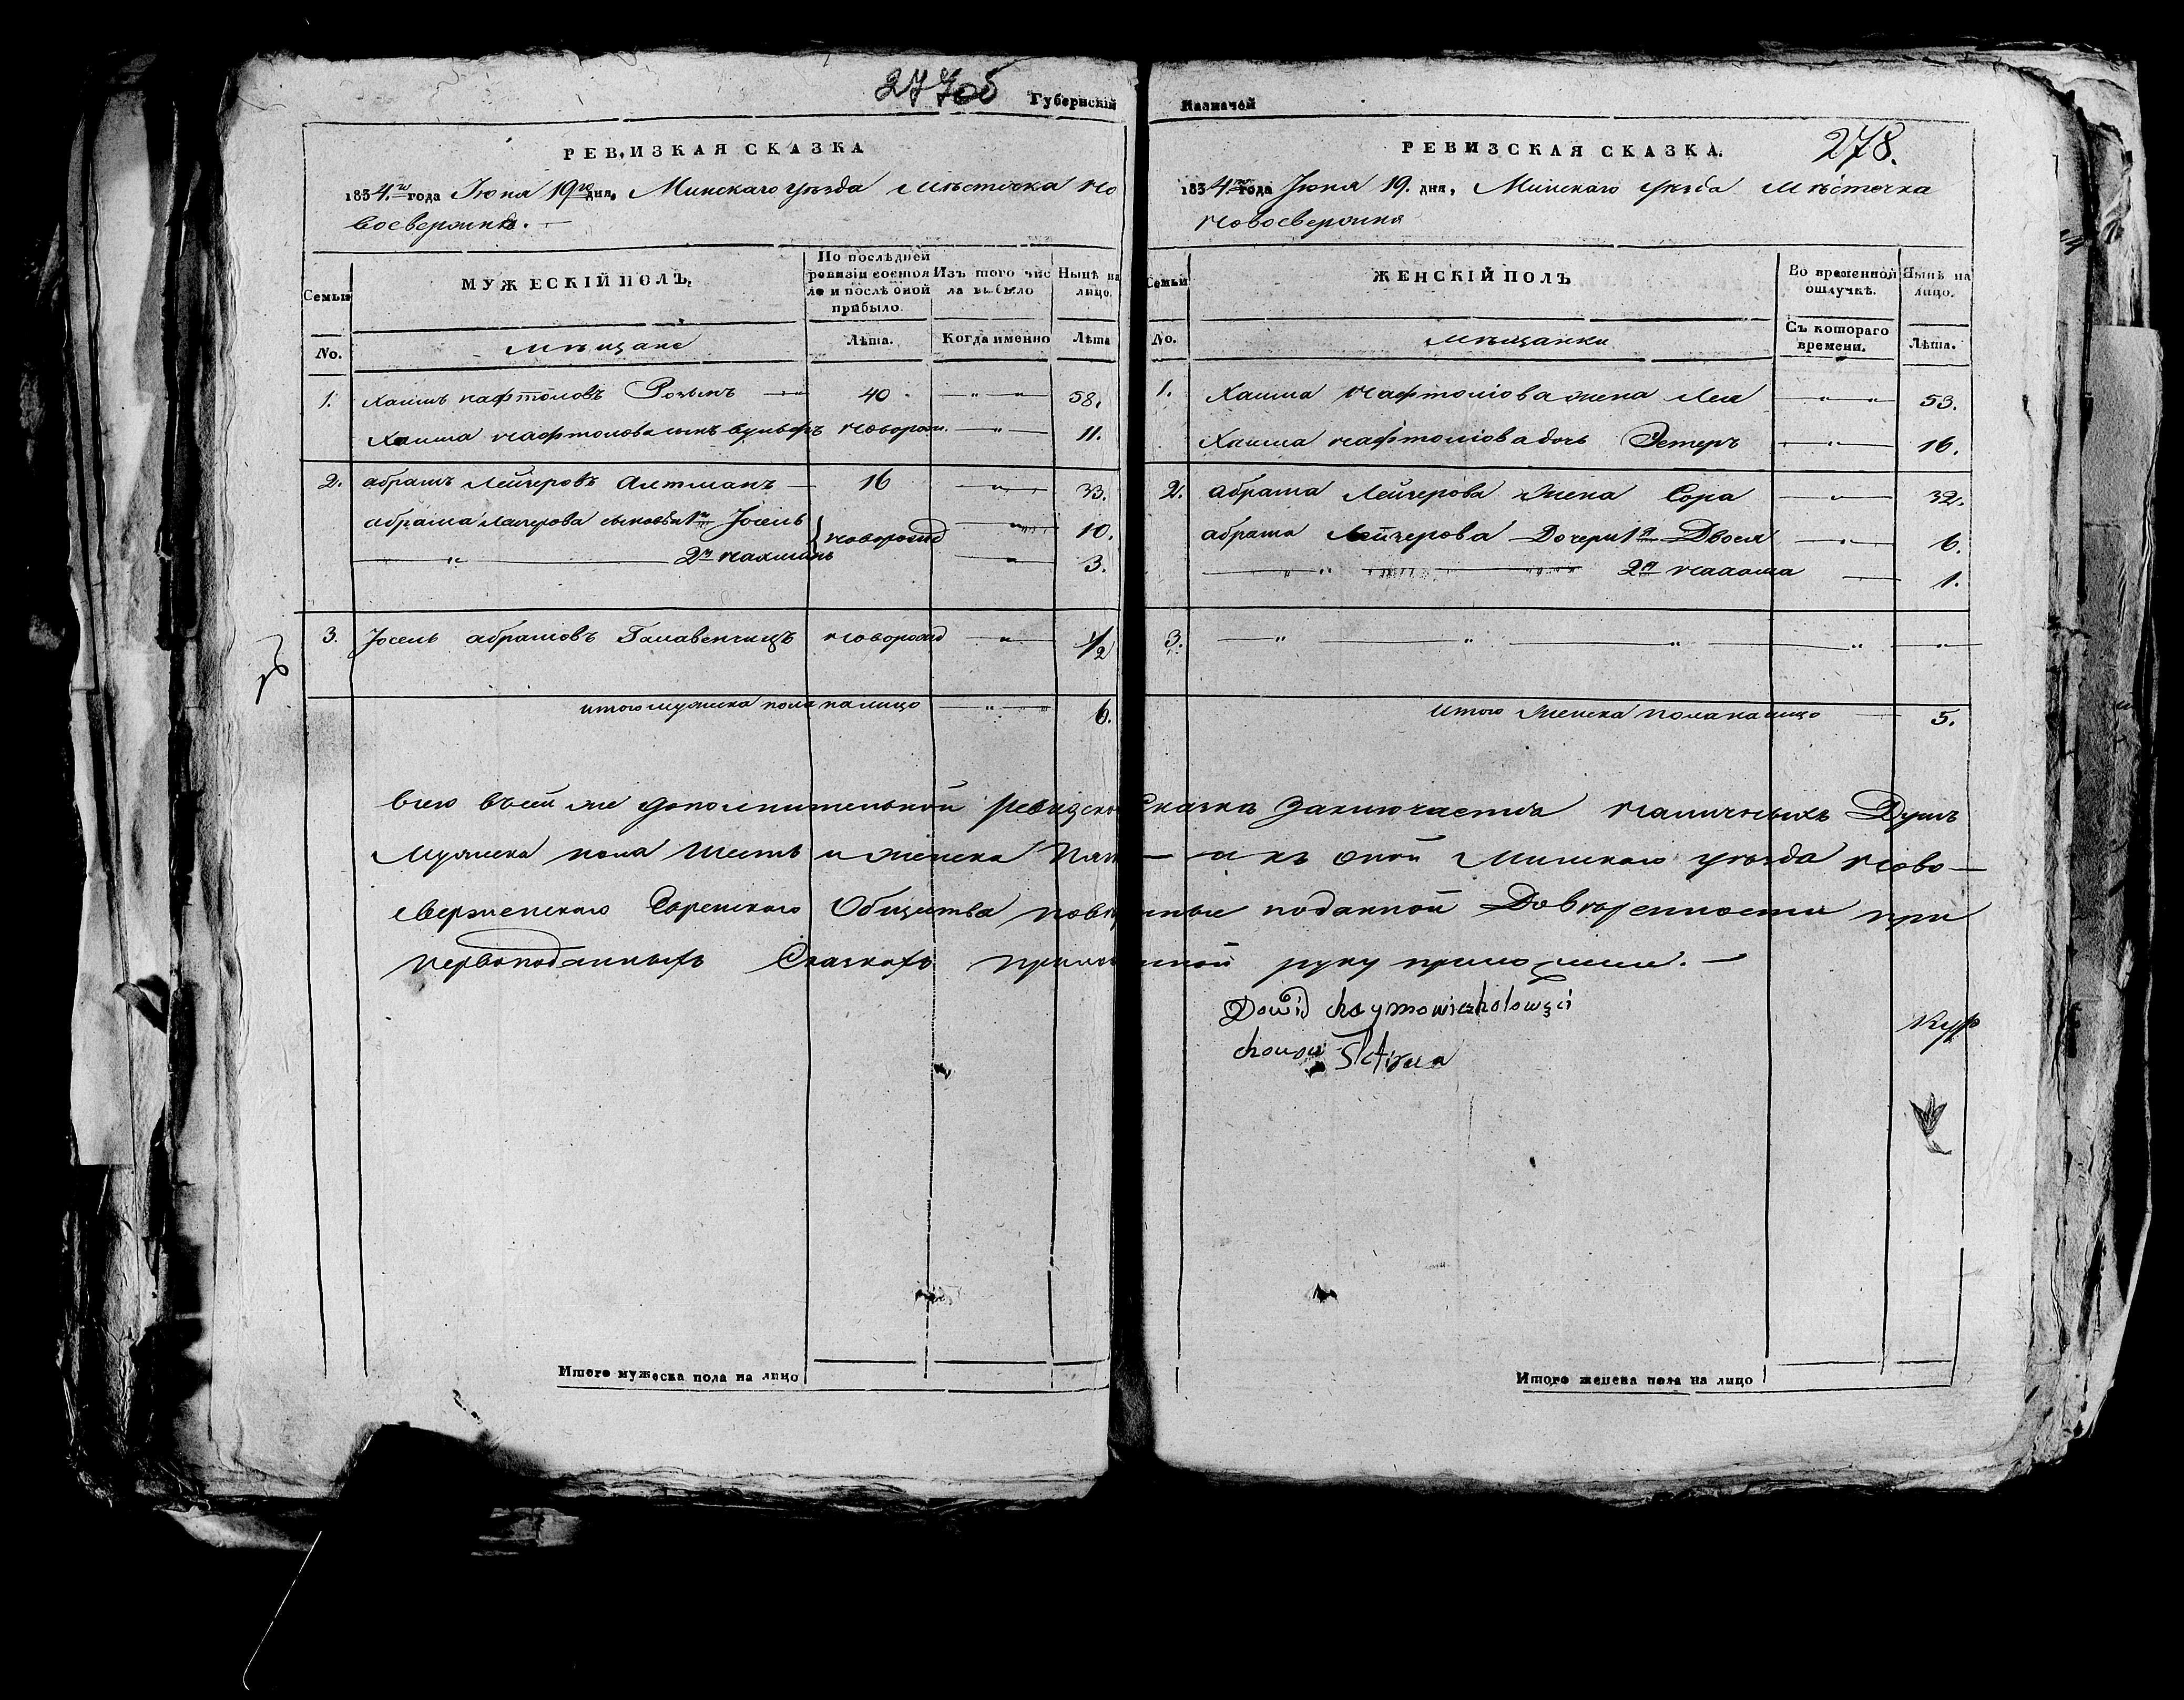 277об Губернскій
РЕВИЗКАЯ СКАЗКА
1834.го года Іюня 19го дня, Минскаго уѣзда Мѣстечка Но
восвержня.
Семьи
МУЖЕСКІЙ ПОЛЪ.
По послѣдней ревизіи состоя ло и послѣ оной прибыло.
Изъ того чис ла выбыло
Нынѣ на лицо.
No.
Мѣщане
Лѣта.
Когда именно
Лѣта
1. Хаимъ Нафтоловъ 40 58.
Хаима Нафтолова сынъ Вульфъ Новорож. 11.
2. Абрамъ Лейзеровъ Алтманъ 16 33.
Абрама Лейзерова сыновья 1й Іосель 10.
новорожд
2й Нахимъ 3.
3. Іосель Абрамовъ новорожд 1/2
итого мужеска пола на лицо 6.
Казначей
РЕВИЗСКАЯ СКАЗКА.
278.
1834.го года Іюня 19. дня, Минскаго уѣзда Мѣстечка
Новосвержня
Семьи
ЖЕНСКІЙ ПОЛЪ
Во временной отлучкѣ.
Нынѣ на лицо.
No.
Мѣщанки
Съ котораго времени.
Лѣта.
1. Хаима Нафтолова жена Лея 53.
Хаима Нафтолова дочь Эстеръ 16.
2. Абрама Лейзерова жена Сора 32.
Абрама Лейзерова Дочери 1я Двося 6.
2я 1.
3.
Итого женска пола на лицо 5.
Всего въ сей же дополнительной ревизской Сказкѣ заключается наличныхъ Душъ
Мужеска пола шесть и женска пять и къ оной Минскаго уѣзда Ново
Сверженскаго Еврейскаго Общества повѣренные по данной Довѣренности при
первоподанныхъ Сказкахъ приложенной руку приложили.
Dowid
Итого мужеска пола на лицо
Итого женска пола на лицо